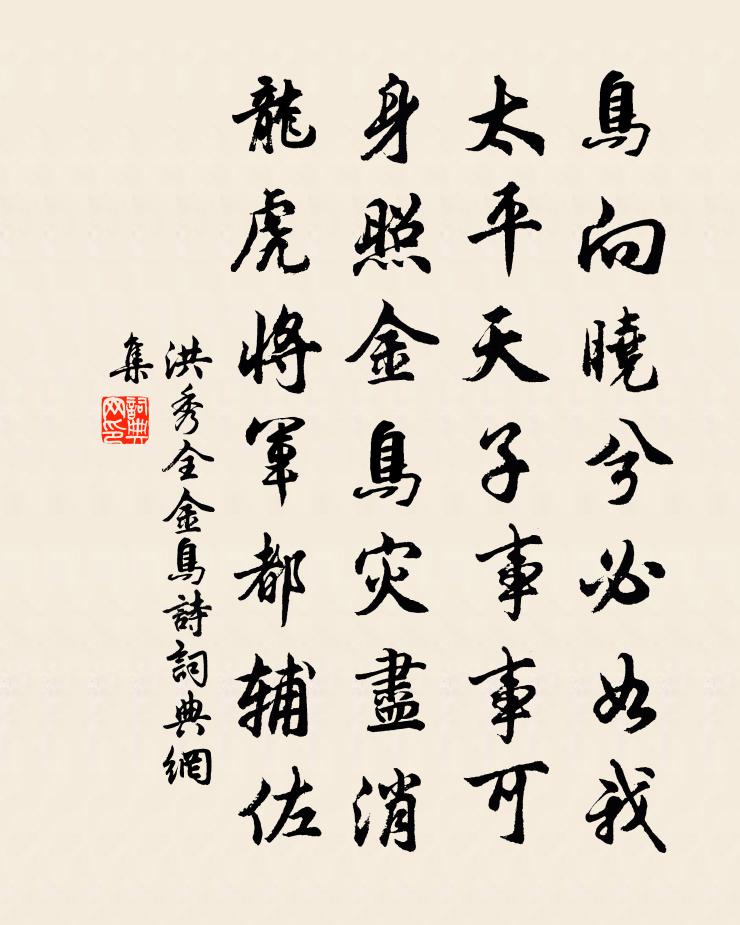 鳥向曉兮必如我
太平天子事事可
身照金鳥災盡消
龍虎將軍都輔佐
洪秀全金鳥詩詞典網
集
詞典
网印